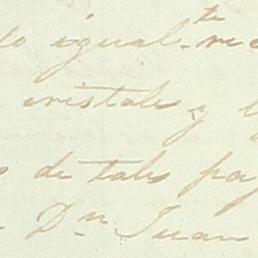 lo igual-te re
cristales y l
s de tales pa
Dn Juan